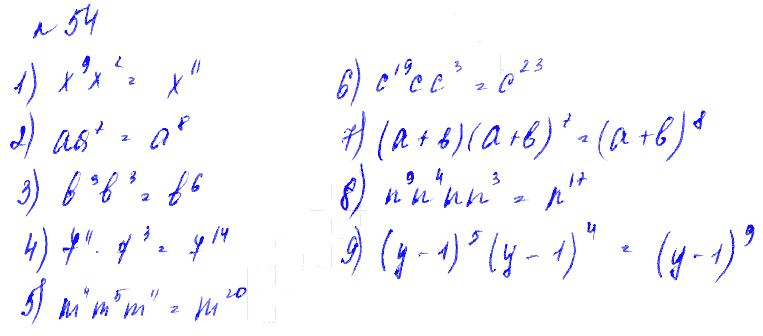 №54
1) x⁹x² = x¹¹
2) aa⁷ = a⁸
3) b³b³ = b⁶
4) 7¹¹ · 7³ = 7¹⁴
5) m⁴m⁵m¹¹ = m²⁰
6) c¹⁹cc³ = c²³
7) (a + b)(a + b)⁷ = (a + b)⁸
8) n⁹n⁴nn³ = n¹⁷
9) (y - 1)⁵(y - 1)⁴ = (y - 1)⁹